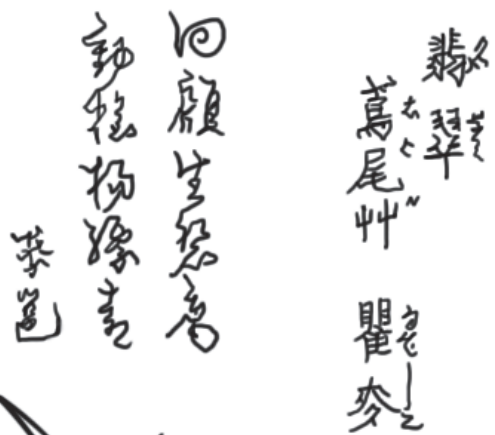 翡翠
鳶尾艸　瞿麦
回顧生碧色
動揺揚縹青
蔡邕